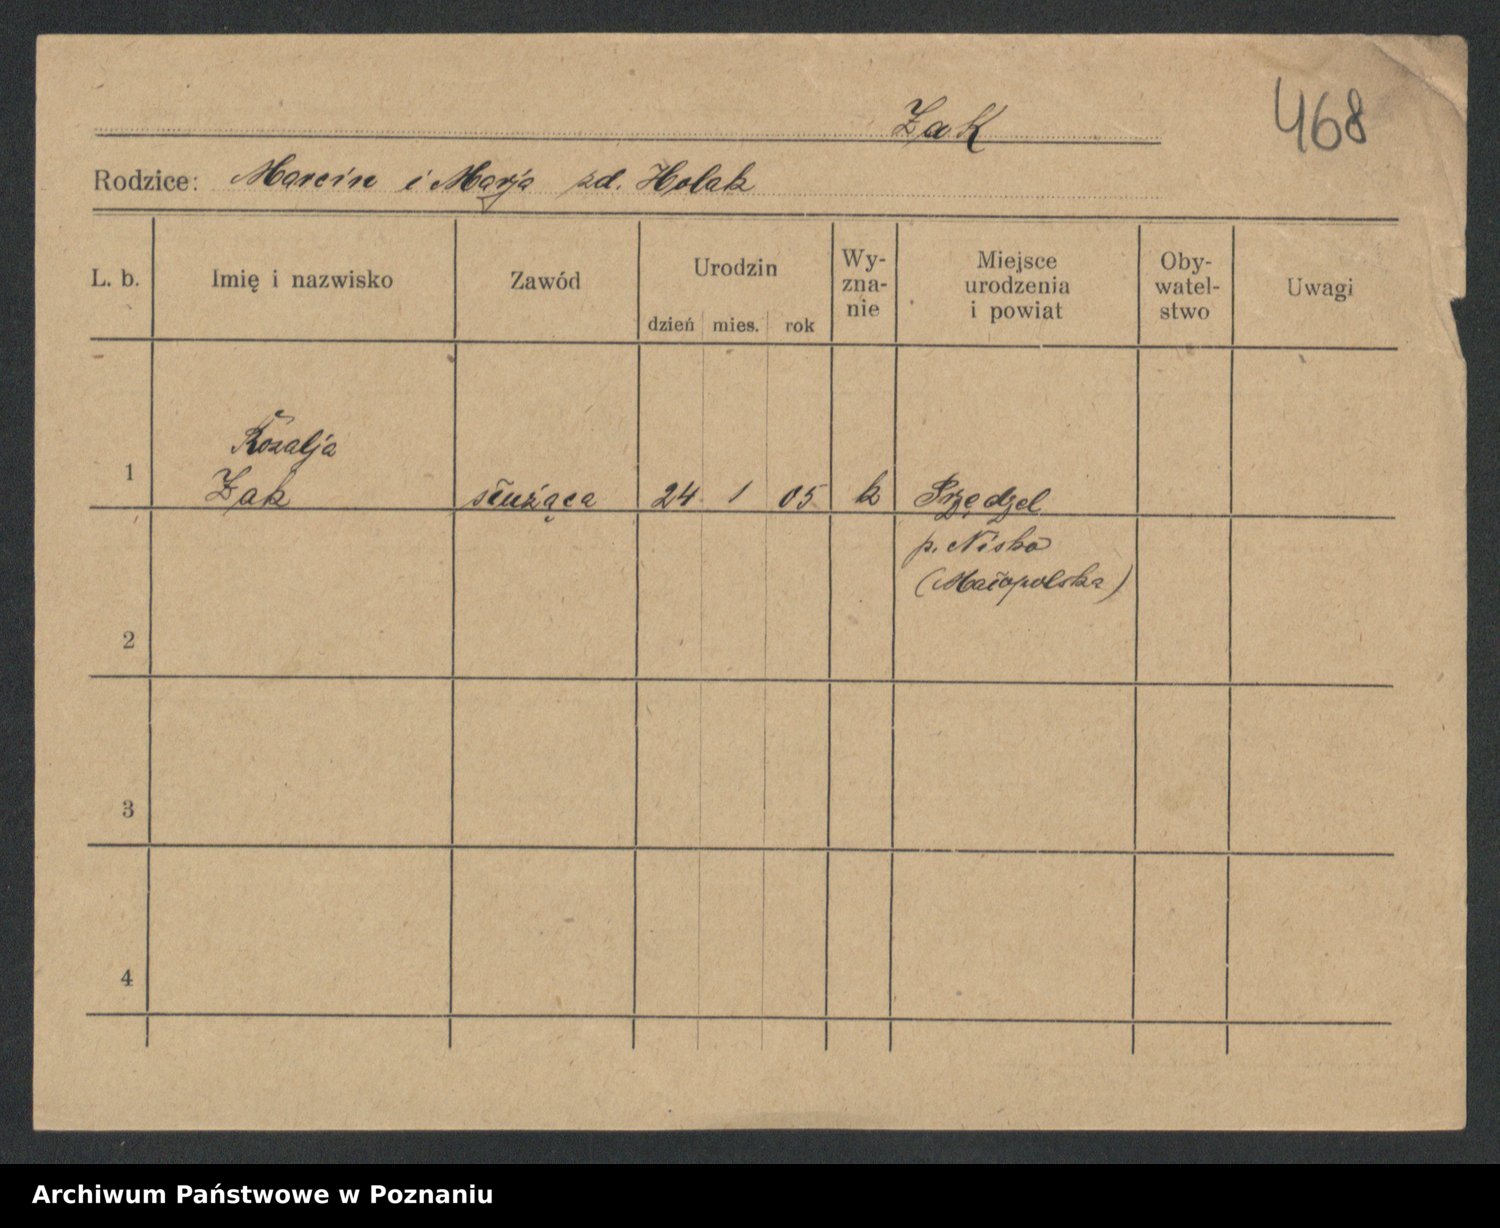 Żak
468
Rodzice: Marcin i Marja zd. Holak
L. b.
Imię i nazwisko
Zawód
Urodzin
dzień mies. rok
Wy-
zna-
nie
Miejsce
urodzenia
i powiat
Oby-
watel-
stwo
Uwagi
Rozalja
1 Żak służąca 24 1 05 k Przędzel
p. Nisko
(Małopolska)
2
3
4
Archiwum Państwowe w Poznaniu